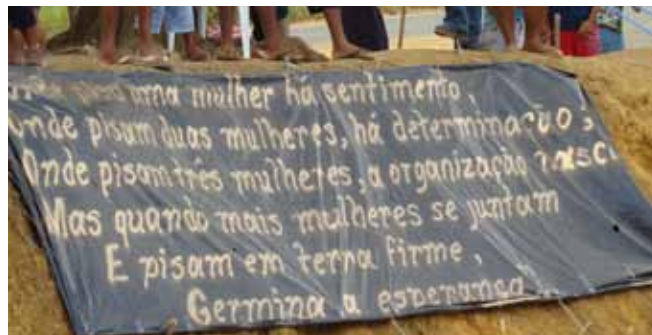 Onde pisa uma mulher há sentimento,
Onde pisam duas mulheres, há determinação;
Onde pisam três mulheres, a organização nasce
Mas quando mais mulheres se juntam
E pisam em terra firme,
Germina a esperança